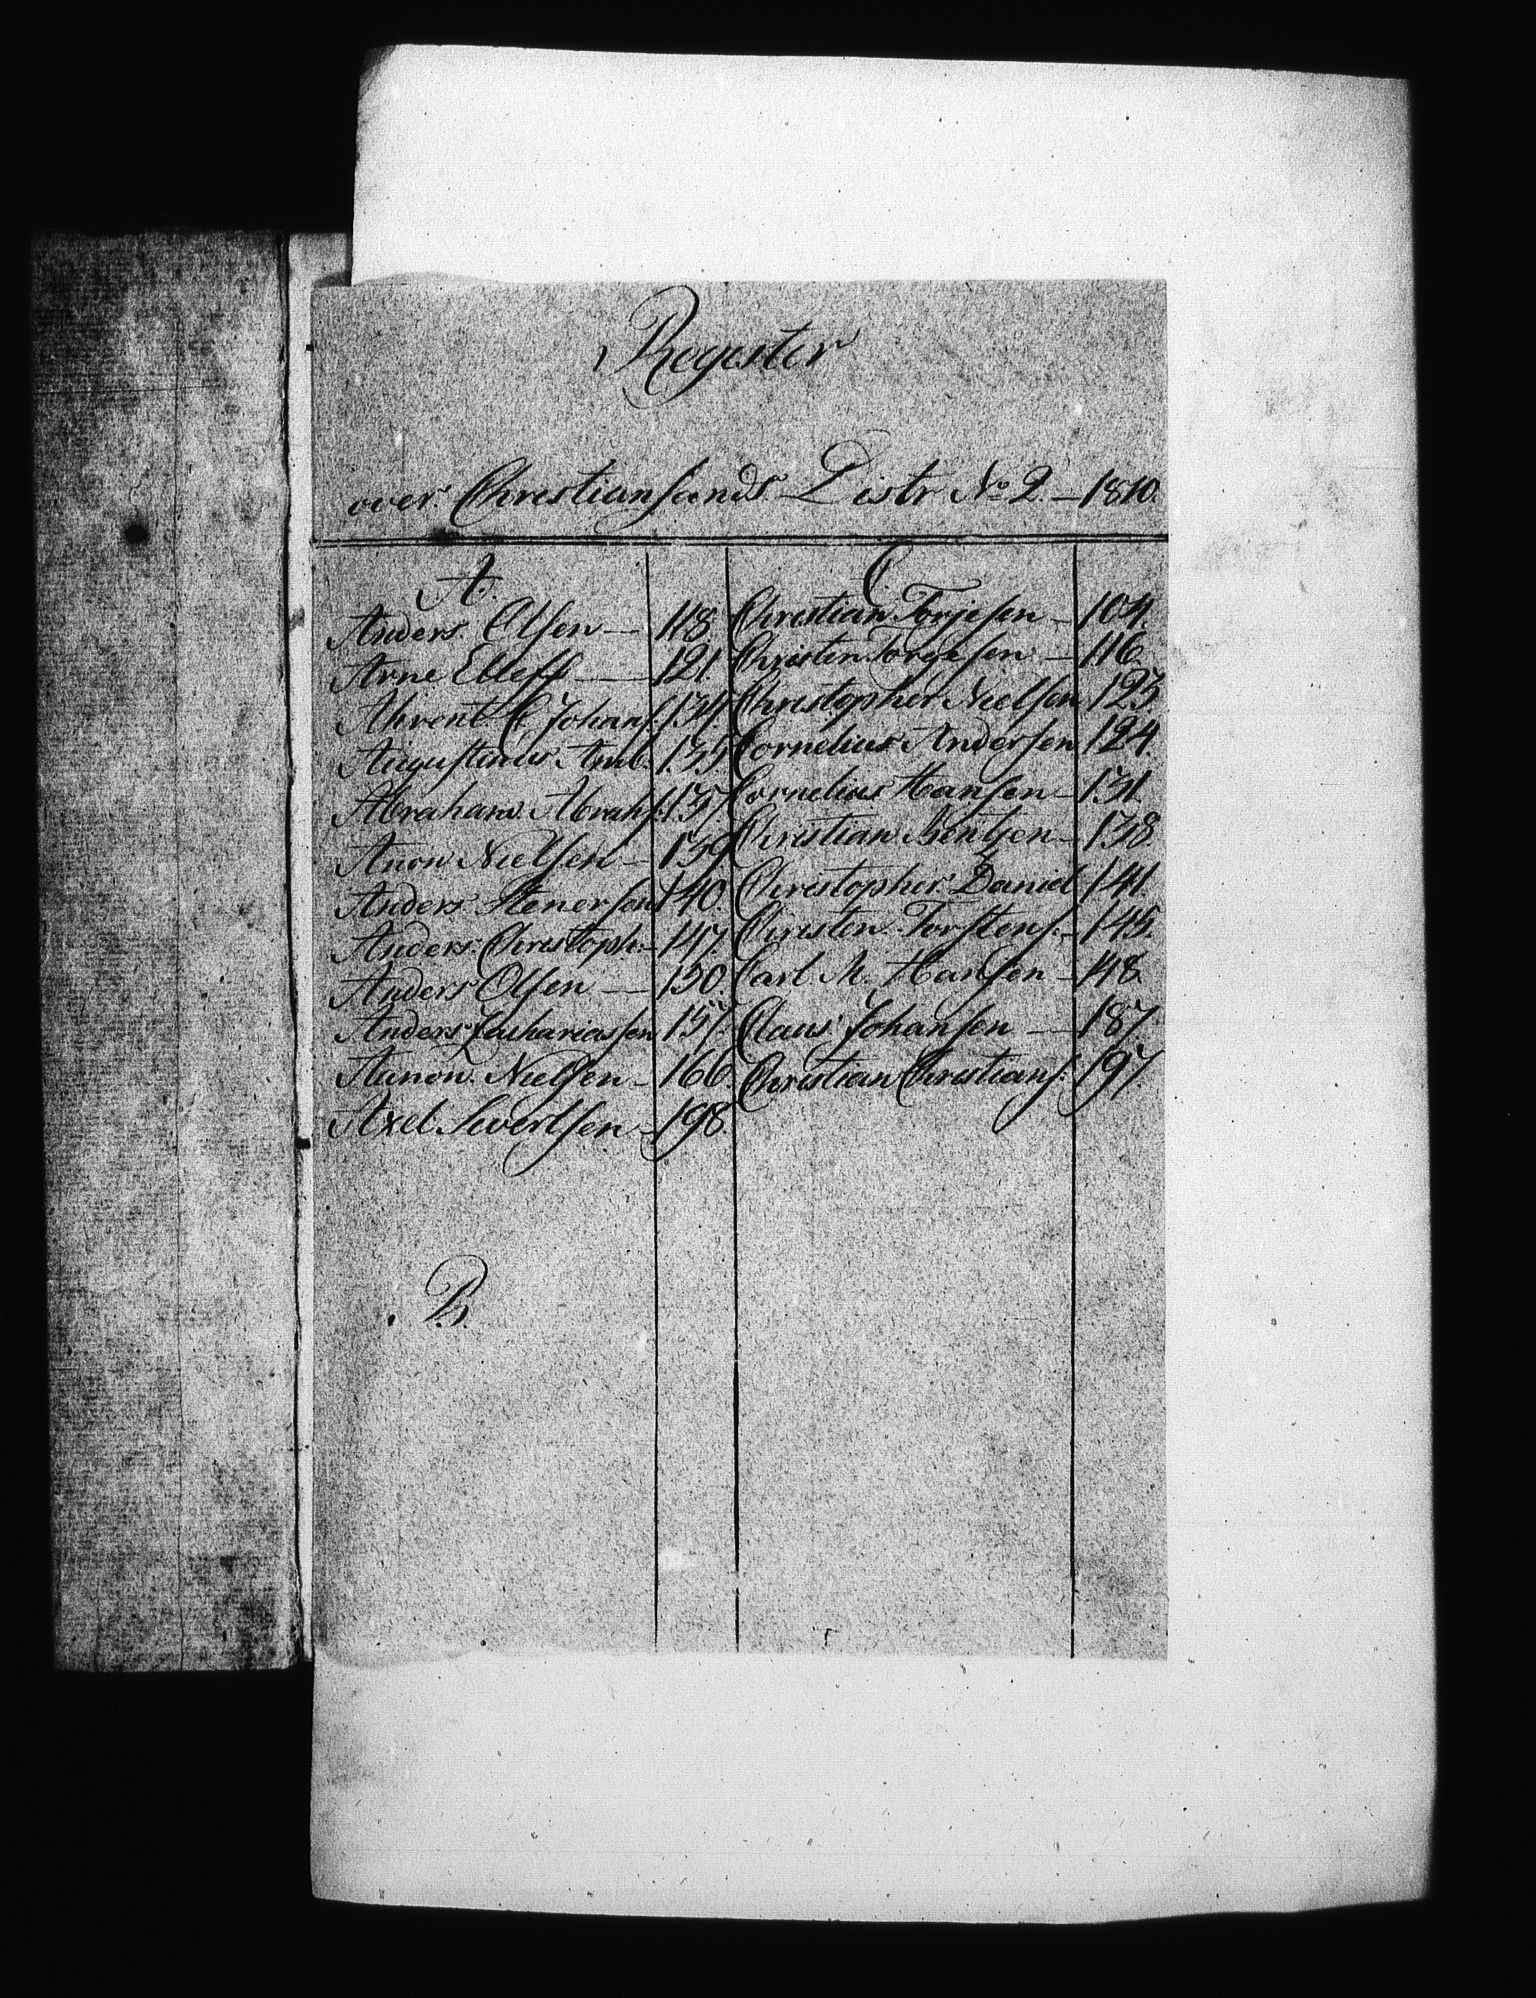 Register
over Christiansands Distr No 2 – 1810.
A.
Anders Olsen — 118
Arne Elleff — 121.
Ahrent C Johans: 134.
Augustinus Amb. 135.
Abraham Abrahs: 137.
Anon Nielsen – 139
Anders Stenersen 140.
Anders Christoph: – 147.
Anders Olsen — 150.
Anders Zachariassen 157.
Aanon Nielsen – 166.
Axel Sivertsen – 198.
B.
C.
Christian Torjesen – 104.
Christen Torgesen – 116.
Christopher Nielsen 123.
Cornelius Andersen 124.
Cornelius Hansen – 131.
Christian Bentsen – 138.
Christopher Daniel 141
Christen Torstens: – 145.
Carl M. Hansen – 148.
Claus Johansen — 187.
Christian Christians: 197.